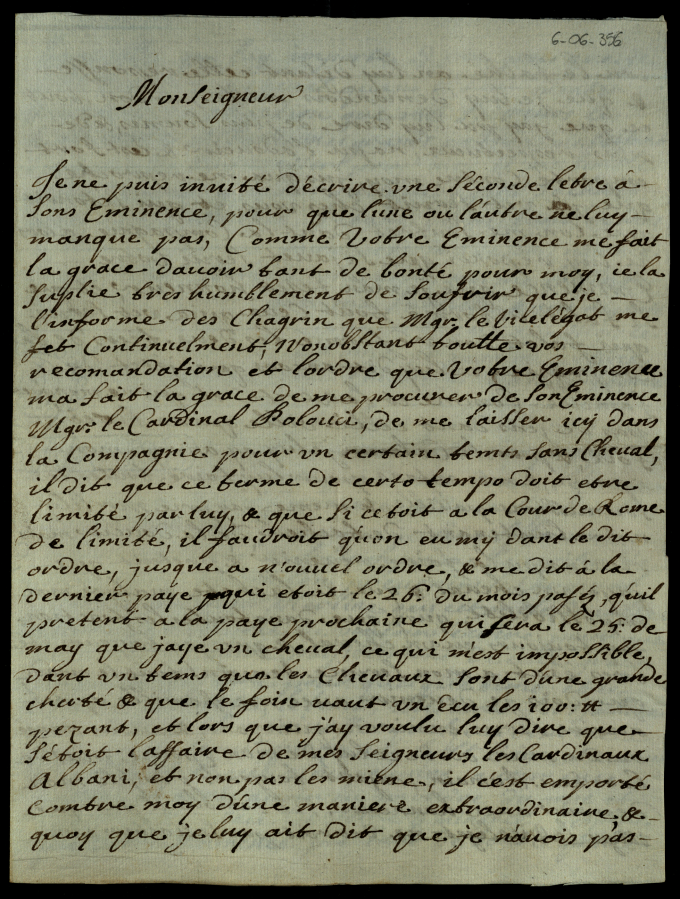 6-06-356
Monseigneur
Je ne puis invité d'écrire vne séconde letre á
sons Eminence, pour que l'une ou l'autre ne luy
manque pas, Comme Votre Eminence me fait
la grace davoir tant de bonté pour moy, ie la
suplie tres humblement de soufrir que je
l'informe des Chagrin que Mgr. le Vicelégat me
fet Continuelment, Nonobstant toutte vos
recomandation et lordre que Votre Eminence
ma fait la grace de me procurer de son Eminence
Mgr. le Cardinal Polouci, de me laisser icy dans
la Compagnie pour vn certain temts sans Cheval,
il dit que ce terme de certo tempo doit etre
limité par luy, & que si cetoit a la Cour de Rome
de limité, il faudroit qu'on eu my dant le dit
ordre, jusque a n'ouvel ordre, & me dit á la
dernier paye qui etoit le 26. du mois pasé, qu'il
pretent a la paye prochaine qui sera le 25. de
may que jaye vn cheval, ce qui m'est impossible,
dant vn tems que les Chevaux sont d'une grande
cherté & que le foin vaut vn écu les 100: ₶
pezant, et lors que j'ay voulu luy dire que
s'étoit l'affaire de mes seigneurs les Cardinaux
Albani, et non pas les miene, il c'est emporté
Combre moy d'une maniere extraordinaire, &
quoy que je luy ait dit que je n'avois pas